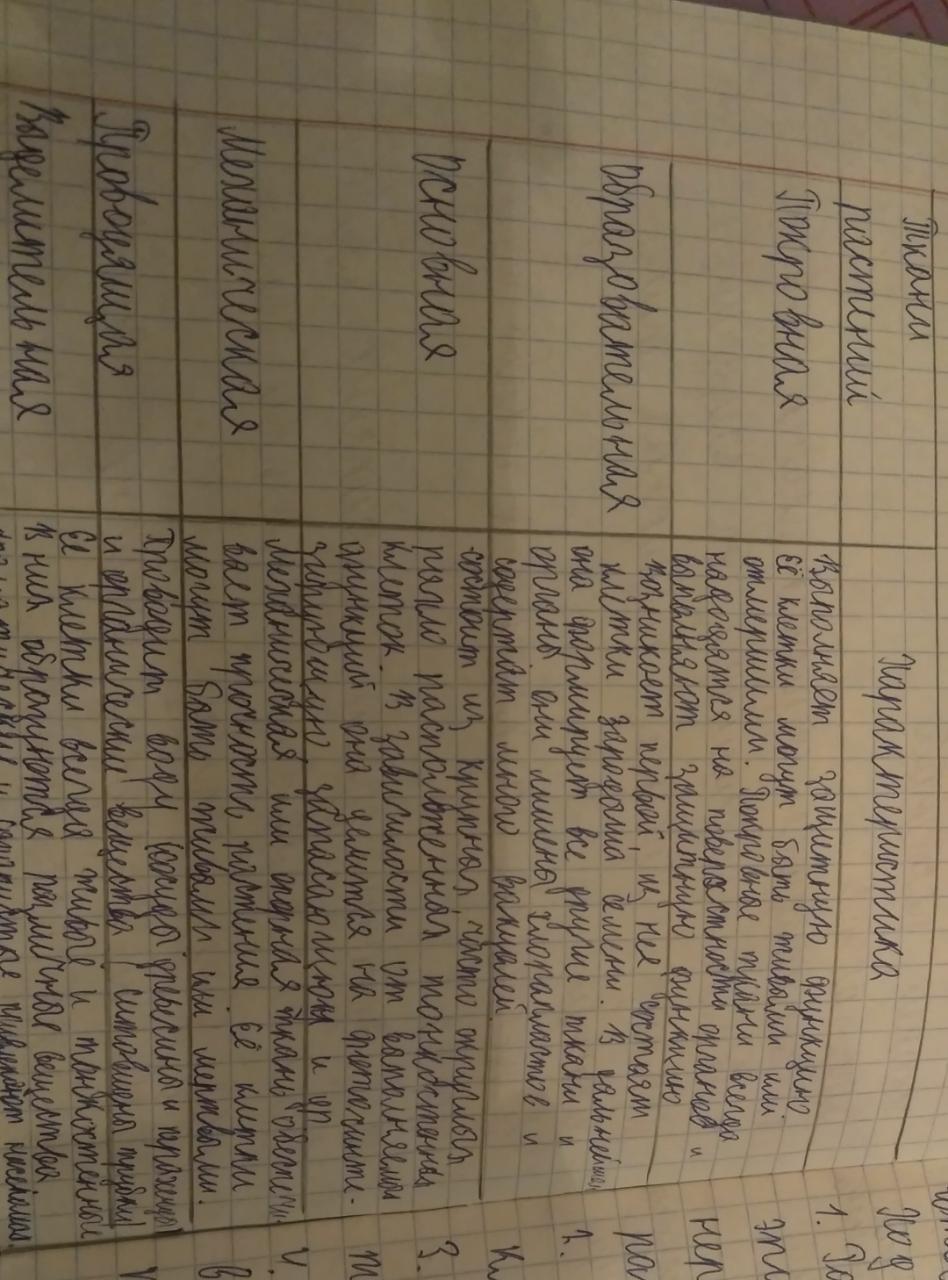 Ткани
растений
Характеристика
Покровная
Выполняет защитную функцию.
Её клетки могут быть живыми или
отмершими. Покровные ткани всегда
находятся на поверхности органов и
выполняют защитную функцию
Образовательная
Возникает первой из нее состоят
клетки зародыша семени. В дальнейшем
она формирует все другие ткани и
органы они лишены хлоропластов и
содержат много вакуолей.
Основная
состоит из крупных, часто округлых
рыхло расположенных тонкостенных
клеток. В зависимости от выполняемой
функций она делится на фотосинте-
зирующую запасающую и др.
Механическая
Механическая или опорная ткань обеспечи-
вает прочность растения. Её клетки
могут быть живыми или мертвыми.
Проводящая
Проводит воду (сосуды древесины)
и органические вещества ситовидные трубки
Выделительная
Её клетки всегда живые и тонкостенные
В них образуются различные вещества
Под
1.
эп
нер
ра
2.
к
3.
т
4.
в